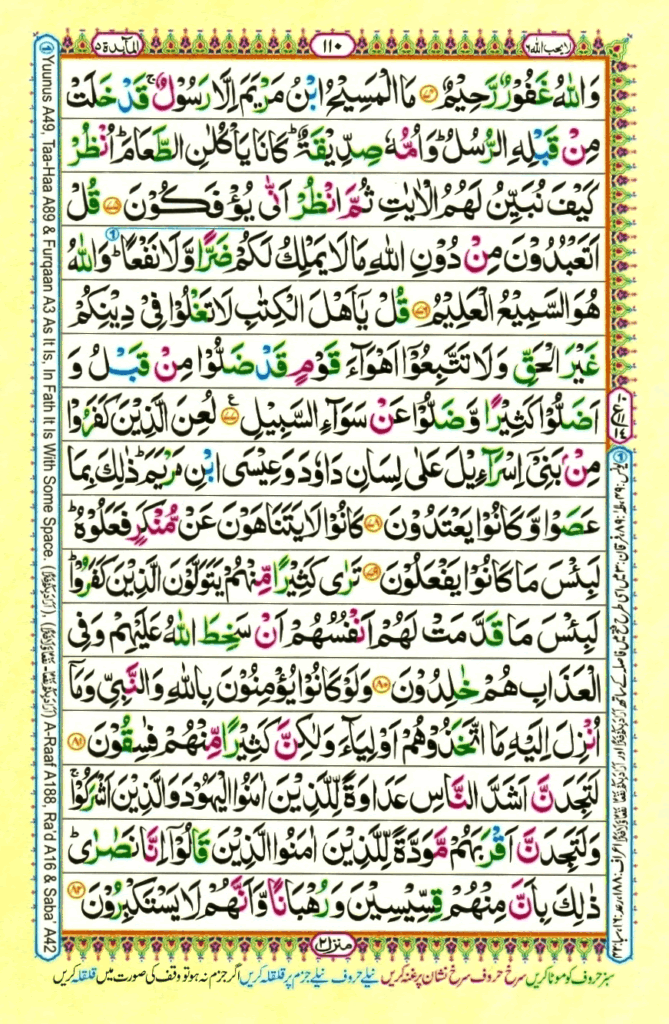 لا یحب اللہ ٦
١١٠
المآىِٕدة ٥
وَاللّٰهُ غَفُوْرٌ رَّحِیْمٌ ﴿۷۴﴾ مَا الْمَسِیْحُ ابْنُ مَرْیَمَ اِلَّا رَسُوْلٌ ۚ قَدْ خَلَتْ
مِنْ قَبْلِهِ الرُّسُلُ ؕ وَاُمُّهٗ صِدِّیْقَةٌ ؕ كَانَا یَاْكُلٰنِ الطَّعَامَ ؕ اُنْظُرْ
كَیْفَ نُبَیِّنُ لَهُمُ الْاٰیٰتِ ثُمَّ انْظُرْ اَنّٰی یُؤْفَكُوْنَ ﴿۷۵﴾ قُلْ
اَتَعْبُدُوْنَ مِنْ دُوْنِ اللّٰهِ مَا لَا یَمْلِكُ لَكُمْ ضَرًّا وَّلَا نَفْعًا ؕ وَاللّٰهُ
هُوَ السَّمِیْعُ الْعَلِیْمُ ﴿۷۶﴾ قُلْ یٰۤاَهْلَ الْكِتٰبِ لَا تَغْلُوْا فِیْ دِیْنِكُمْ
غَیْرَ الْحَقِّ وَلَا تَتَّبِعُوْۤا اَهْوَآءَ قَوْمٍ قَدْ ضَلُّوْا مِنْ قَبْلُ وَ
اَضَلُّوْا كَثِیْرًا وَّضَلُّوْا عَنْ سَوَآءِ السَّبِیْلِ ﴿۷۷﴾ ع لُعِنَ الَّذِیْنَ كَفَرُوْا
مِنْۢ بَنِیْۤ اِسْرَآءِیْلَ عَلٰی لِسَانِ دَاوٗدَ وَعِیْسَی ابْنِ مَرْیَمَ ؕ ذٰلِكَ بِمَا
عَصَوْا وَّكَانُوْا یَعْتَدُوْنَ ﴿۷۸﴾ كَانُوْا لَا یَتَنَاهَوْنَ عَنْ مُّنْكَرٍ فَعَلُوْهُ ؕ
لَبِئْسَ مَا كَانُوْا یَفْعَلُوْنَ ﴿۷۹﴾ تَرٰی كَثِیْرًا مِّنْهُمْ یَتَوَلَّوْنَ الَّذِیْنَ كَفَرُوْا ؕ
لَبِئْسَ مَا قَدَّمَتْ لَهُمْ اَنْفُسُهُمْ اَنْ سَخِطَ اللّٰهُ عَلَیْهِمْ وَفِی
الْعَذَابِ هُمْ خٰلِدُوْنَ ﴿۸۰﴾ وَلَوْ كَانُوْا یُؤْمِنُوْنَ بِاللّٰهِ وَالنَّبِیِّ وَمَاۤ
اُنْزِلَ اِلَیْهِ مَا اتَّخَذُوْهُمْ اَوْلِیَآءَ وَلٰكِنَّ كَثِیْرًا مِّنْهُمْ فٰسِقُوْنَ ﴿۸۱﴾
لَتَجِدَنَّ اَشَدَّ النَّاسِ عَدَاوَةً لِّلَّذِیْنَ اٰمَنُوا الْیَهُوْدَ وَالَّذِیْنَ اَشْرَكُوْا ۚ
وَلَتَجِدَنَّ اَقْرَبَهُمْ مَّوَدَّةً لِّلَّذِیْنَ اٰمَنُوا الَّذِیْنَ قَالُوْۤا اِنَّا نَصٰرٰی ؕ
ذٰلِكَ بِاَنَّ مِنْهُمْ قِسِّیْسِیْنَ وَرُهْبَانًا وَّاَنَّهُمْ لَا یَسْتَكْبِرُوْنَ ﴿۸۲﴾
منزل ٢
سبز حروف کو موٹا کریں سرخ حروف سرخ نشان پر غنہ کریں نیلے حروف نیلے جزم پر قلقلہ کریں اگر جزم نہ ہو تو وقف کی صورت میں قلقلہ کریں
Yuunus A49, Taa-Haa A89 & Furqaan A3 As It Is, In Fath It Is With Some Space. A-Raaf A188, Ra'd A16 & Saba' A42